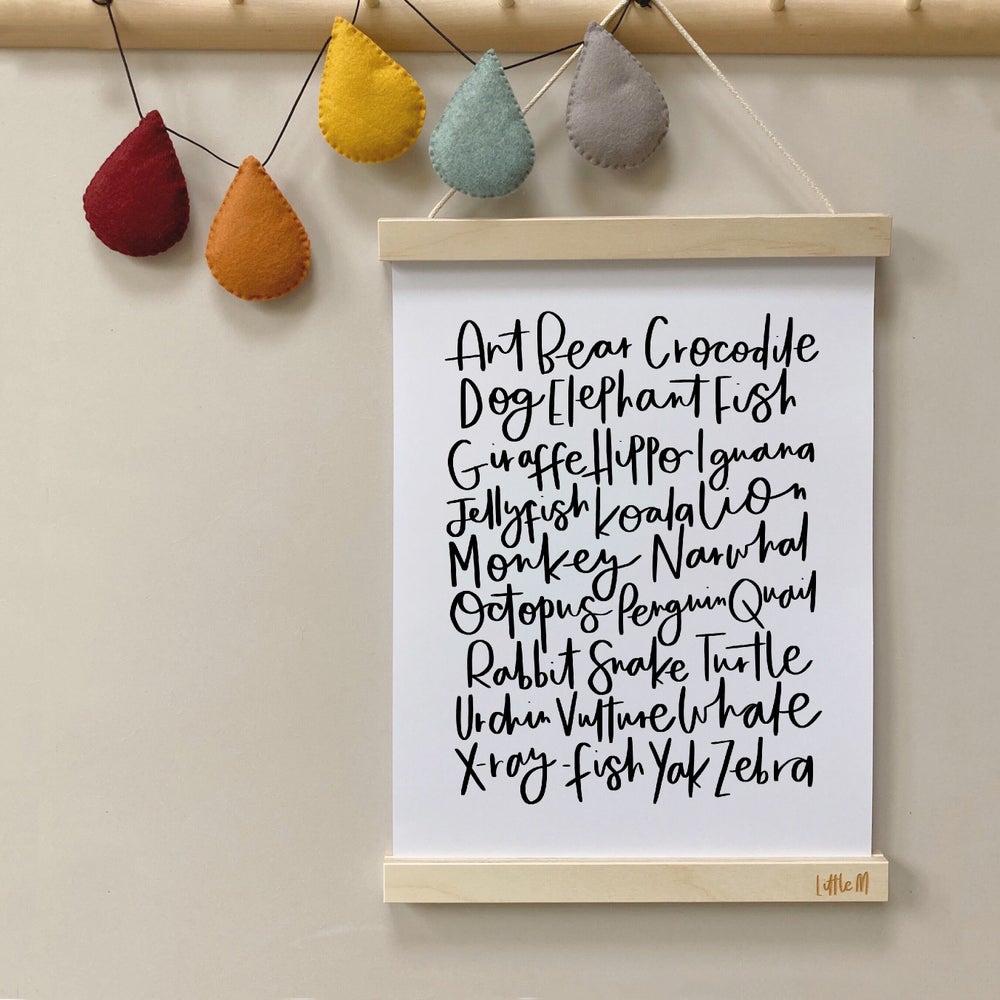 Ant Bear Crocodile
Dog Elephant Fish
Giraffe Hippo Iguana
Jellyfish Koala Lion
Monkey Narwhal
Octopus Penguin Quail
Rabbit Snake Turtle
Urchin Vulture Whale
X-ray-fish Yak Zebra
Little M